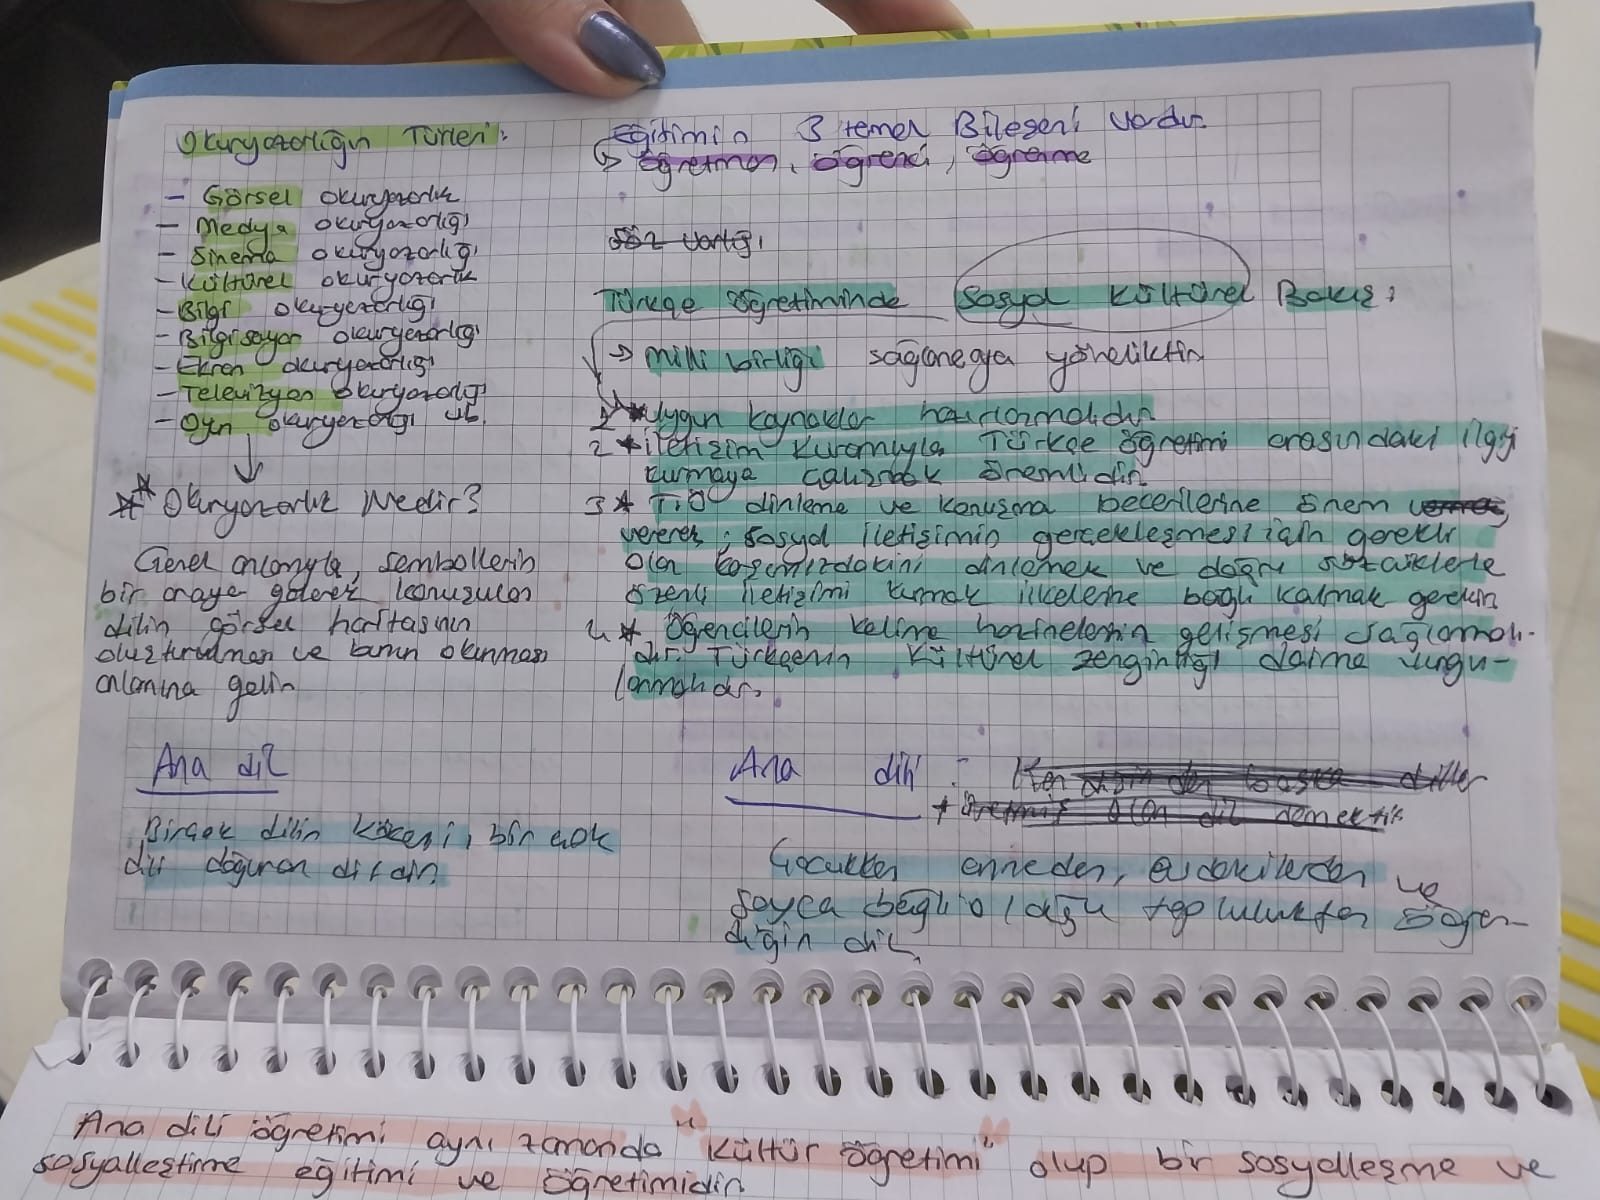 Okuryazarlığın Türleri:
- Görsel okuryazarlık
- Medya okuryazarlığı
- Sinema okuryazarlığı
- Kültürel okuryazarlık
- Bilgi okuryazarlığı
- Bilgisayar okuryazarlığı
- Ekran okuryazarlığı
- Televizyon okuryazarlığı
- Oyun okuryazarlığı vb.
** Okuryazarlık Nedir?
Genel anlamıyla, sembollerin
bir araya gelerek konuşulan
dilin görsel haritasının
oluşturulması ve bunun okunması
anlamına gelir
Eğitimin 3 temel Bileşeni vardır.
→ öğretmen, öğrenci, öğrenme
Söz varlığı
Türkçe öğretiminde Sosyal Kültürel Bakış:
→ Milli birliği sağlamaya yöneliktir
1 * Uygun kaynaklar hazırlanmalıdır
2 * iletişim kuramıyla Türkçe öğretimi arasındaki ilgiyi
kurmaya çalışmak önemlidir.
3 * T.Ö dinleme ve konuşma becerilerine önem
vererek; sosyal iletişimin gerçekleşmesi için gerekli
olan karşımızdakini dinlemek ve doğru sözcüklerle
özenli iletişimi kurmak ilkelerine bağlı kalmak gerekir
4 * Öğrencilerin kelime hazinelerinin gelişmesi sağlanmalı-
dır. Türkçenin kültürel zenginliği daima vurgu-
lanmalıdır.
Ana dil
Birçok dilin kökeni, bir çok
dili doğuran dildir.
Ana dili :
olan dil demektir
Çocukken anneden, evdekilerden ve
Soyca bağlı olduğu topluluktan öğren-
diğin dil.
Ana dili öğretimi aynı zamanda "Kültür öğretimi" olup bir sosyalleşme ve
sosyalleştirme eğitimi ve öğretimidir